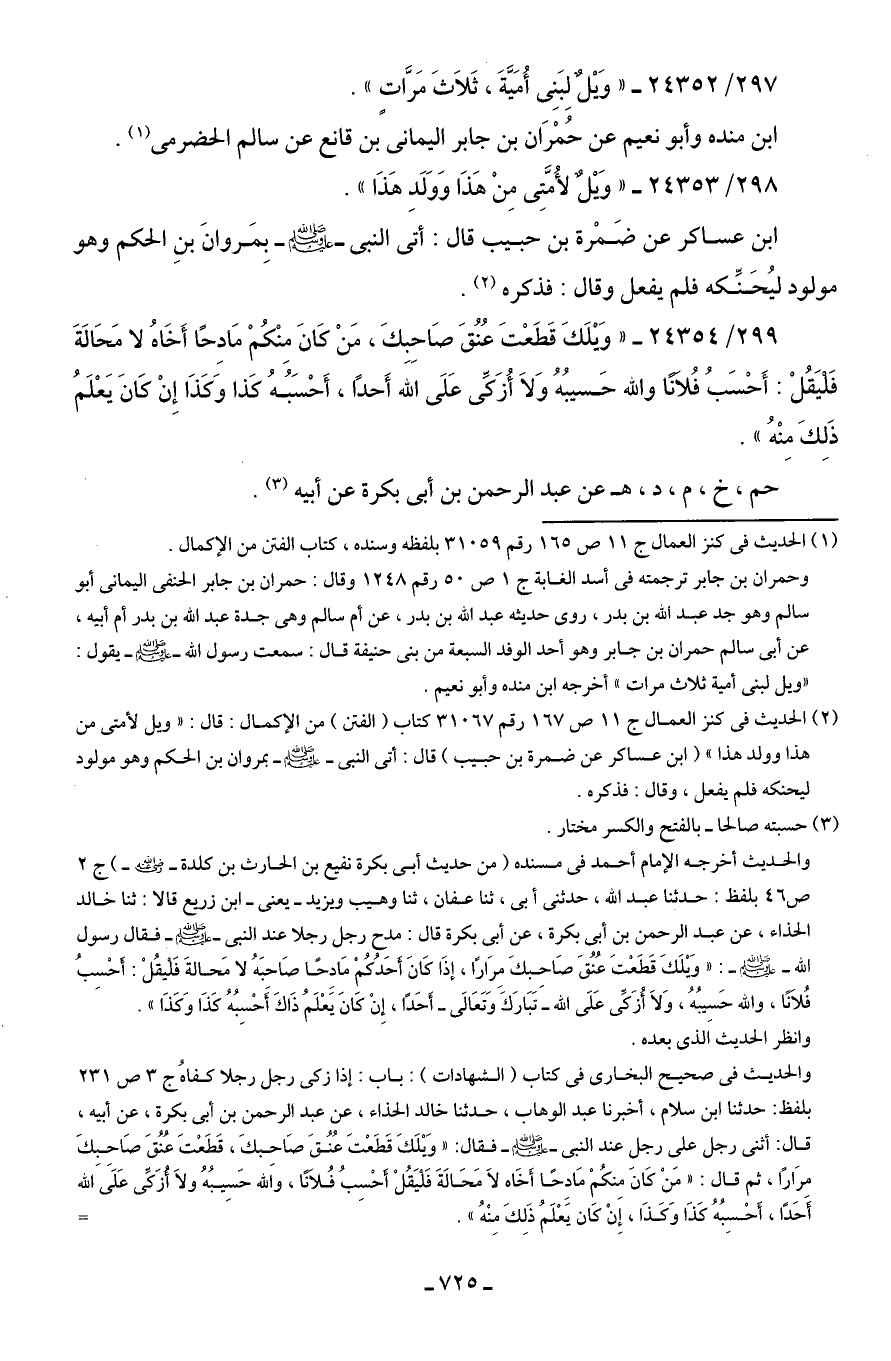 ٢٩٧/ ٢٤٣٥٢ ـ « وَيْلٌ لِبَنِى أُمَيَّةَ ، ثَلاَثَ مَرَّاتٍ » .
ابن منده وأبو نعيم عن حُمْرَان بن جابر اليمانى بن قانع عن سالم الحضرمى(١) .
٢٩٨/ ٢٤٣٥٣ ـ « وَيْلٌ لأُمَّتِى مِنْ هَذَا وَوَلَدِ هَذَا » .
ابن عساكر عن ضَمْرة بن حبيب قال : أتى النبى ـ ﷺ ـ بِمَروانَ بنِ الحكم وهو
مولود ليُحَنِّكه فلم يفعل وقال : فذكره (٢) .
٢٩٩/ ٢٤٣٥٤ ـ « وَيْلَكَ قَطَعْتَ عُنُقَ صَاحِبِكَ ، مَنْ كَانَ مِنْكُمْ مَادِحًا أَخَاهُ لا مَحَالَةَ
فَلْيَقُلْ : أَحْسَبُ فُلاَنًا والله حَسيبُهُ وَلاَ أُزَكِّى عَلَى الله أَحداً ، أَحْسَبُهُ كَذا وَكَذَا إِنْ كَانَ يَعْلَمُ
ذَلِكَ مِنْهُ » .
حم ، خ ، م ، د ، هـ عن عبد الرحمن بن أبى بكرة عن أبيه (٣) .
(١) الحديث فى كنز العمال ج ١١ ص ١٦٥ رقم ٣١٠٥٩ بلفظه وسنده ، كتاب الفتن من الإكمال .
وحمران بن جابر ترجمته فى أسد الغابة ج ١ ص ٥٠ رقم ١٢٤٨ وقال : حمران بن جابر الحنفى اليمانى أبو
سالم وهو جد عبد الله بن بدر ، روى حديثه عبد الله بن بدر ، عن أم سالم وهى جدة عبد الله بن بدر أم أبيه ،
عن أبى سالم حمران بن جابر وهو أحد الوفد السبعة من بنى حنيفة قال : سمعت رسول الله ـ ﷺ ـ يقول :
«ويل لبنى أمية ثلاث مرات » أخرجه ابن منده وأبو نعيم .
(٢) الحديث فى كنز العمال ج ١١ ص ١٦٧ رقم ٣١٠٦٧ كتاب ( الفتن ) من الإكمال : قال : « ويل لأمتى من
هذا وولد هذا » ( ابن عساكر عن ضمرة بن حبيب ) قال : أتى النبى ـ ﷺ ـ بمروان بن الحكم وهو مولود
ليحنكه فلم يفعل ، وقال : فذكره .
(٣) حسبته صالحا ـ بالفتح والكسر مختار .
والحديث أخرجه الإمام أحمد فى مسنده ( من حديث أبى بكرة نفيع بن الحارث بن كلدة ـ رضي الله عنه ـ ) ج ٢
ص٤٦ بلفظ : حدثنا عبد الله ، حدثنى أبى ، ثنا عفان ، ثنا وهيب ويزيد ـ يعنى ـ ابن زريع قالا : ثنا خالد
الحذاء ، عن عبد الرحمن بن أبى بكرة ، عن أبى بكرة قال : مدح رجل رجلا عند النبى ـ ﷺ ـ فقال رسول
الله ـ ﷺ ـ : « وَيْلَكَ قَطَعْتَ عُنُقَ صَاحِبِكَ مِرَارًا ، إذَا كَانَ أَحَدُكُمْ مَادِحًا صَاحِبَهُ لا مَحالةَ فَلْيَقُلْ : أَحْسِبُ
فُلاَنًا ، والله حَسِيبُهُ ، وَلاَ أُزَكِّى عَلَى الله ـ تَبَارَكَ وَتَعَالَى ـ أَحَدًا ، إِنْ كَانَ يَعْلَمُ ذَاكَ أَحْسِبُهُ كَذَا وَكَذَا » .
وانظر الحديث الذى بعده .
والحديث فى صحيح البخارى فى كتاب ( الشهادات ) : باب : إذا زكى رجل رجلا كفاهُ ج ٣ ص ٢٣١
بلفظ: حدثنا ابن سلام ، أخبرنا عبد الوهاب ، حدثنا خالد الحذاء ، عن عبد الرحمن بن أبى بكرة ، عن أبيه ،
قال: أثنى رجل على رجل عند النبى ـ ﷺ ـ فقال: « وَيْلَكَ قَطَعْتَ عُنُقَ صَاحِبِكَ ، قَطَعْتَ عُنُقَ صَاحِبِكَ
مِرَارًا ، ثم قال : « مَنْ كَانَ مِنكُمْ مَادِحًا أَخَاه لاَ مَحَالَةَ فَلْيَقُلْ أَحْسِبُ فُلاَنًا ، والله حَسِيبُهُ ولاَ أُزَكِّى عَلَى الله
أَحَدًا ، أَحْسِبُهُ كَذَا وَكَذَا ، إِنْ كَان يَعْلَمُ ذَلِكَ مِنْهُ » .
=
ـ ٧٢٥ ـ